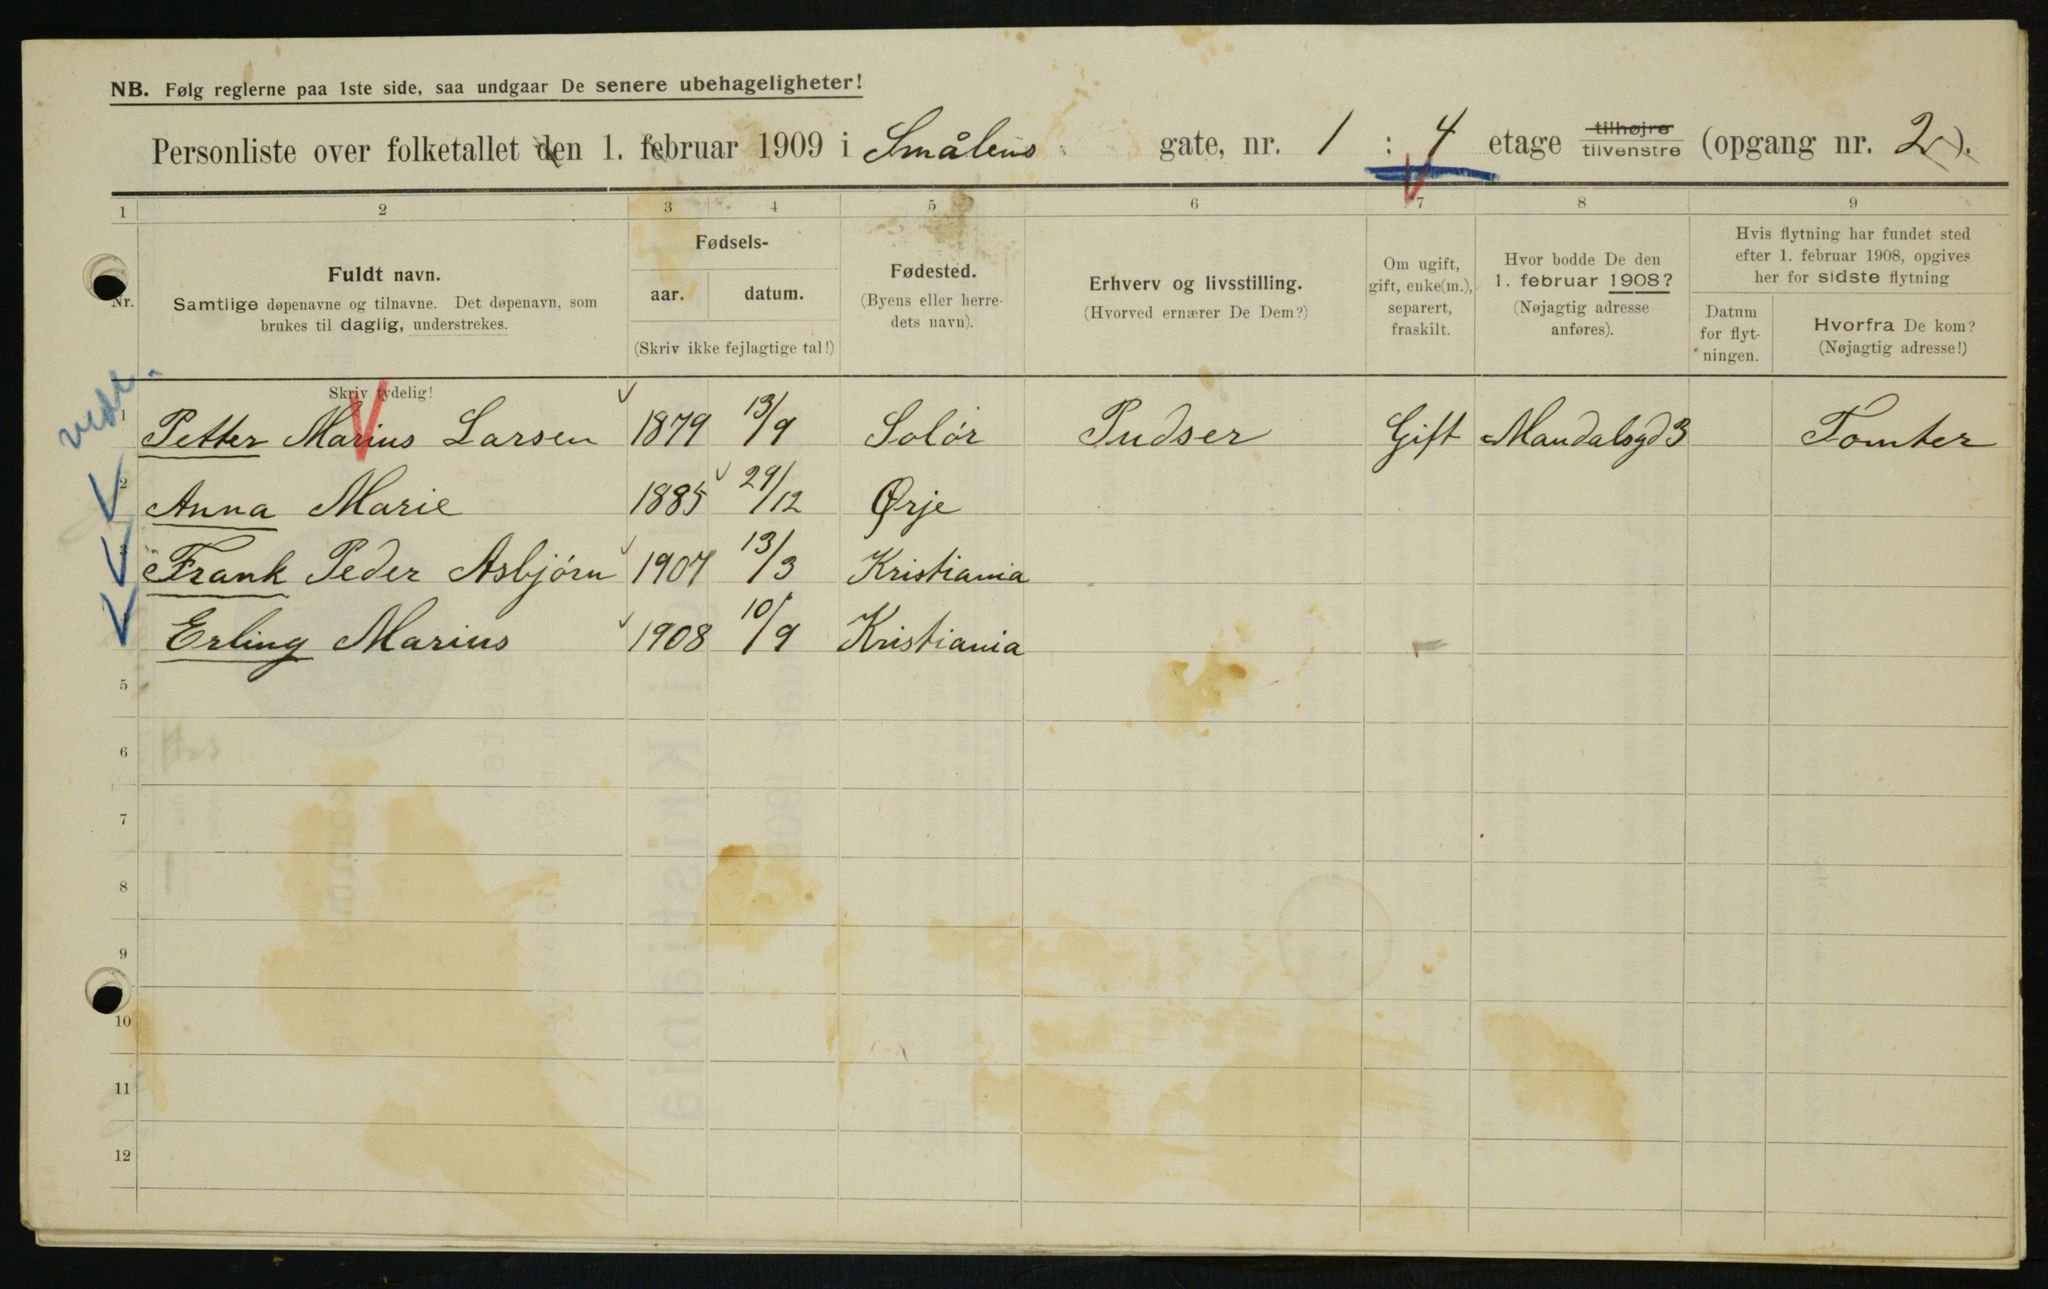 NB. Følg reglerne paa 1ste side, saa undgaar De senere ubehageligheter!
Personliste over folketallet den 1. februar 1909 i Smålens gate, nr. 1 : 4 etage tilhøjre tilvenstre (opgang nr. 2).
1 2 3 4 5 6 7 8 9
Nr.
Fuldt navn.
Samtlige døpenavne og tilnavne. Det døpenavn, som
brukes til daglig, understrekes.
Skriv tydelig!
Fødsels-
aar. datum.
(Skriv ikke fejlagtige tal!)
Fødested.
(Byens eller herre-
dets navn).
Erhverv og livsstilling.
(Hvorved ernærer De Dem?)
Om ugift,
gift, enke(m.),
separert,
fraskilt.
Hvor bodde De den
1. februar 1908?
(Nøjagtig adresse
anføres).
Hvis flytning har fundet sted
efter 1. februar 1908, opgives
her for sidste flytning
Datum
for flyt-
ningen.
Hvorfra De kom?
(Nøjagtig adresse!)
1 Petter Marius Larsen 1879 13/9 Solör Pudser Gift Mandalsgd 3 Tomter
2 Anna Marie 1885 29/12 Ørje
3 Frank Peder Asbjörn 1907 13/3 Kristiania
Erling Marius 1908 10/9 Kristiania
5
6
7
8
9
10
11
12